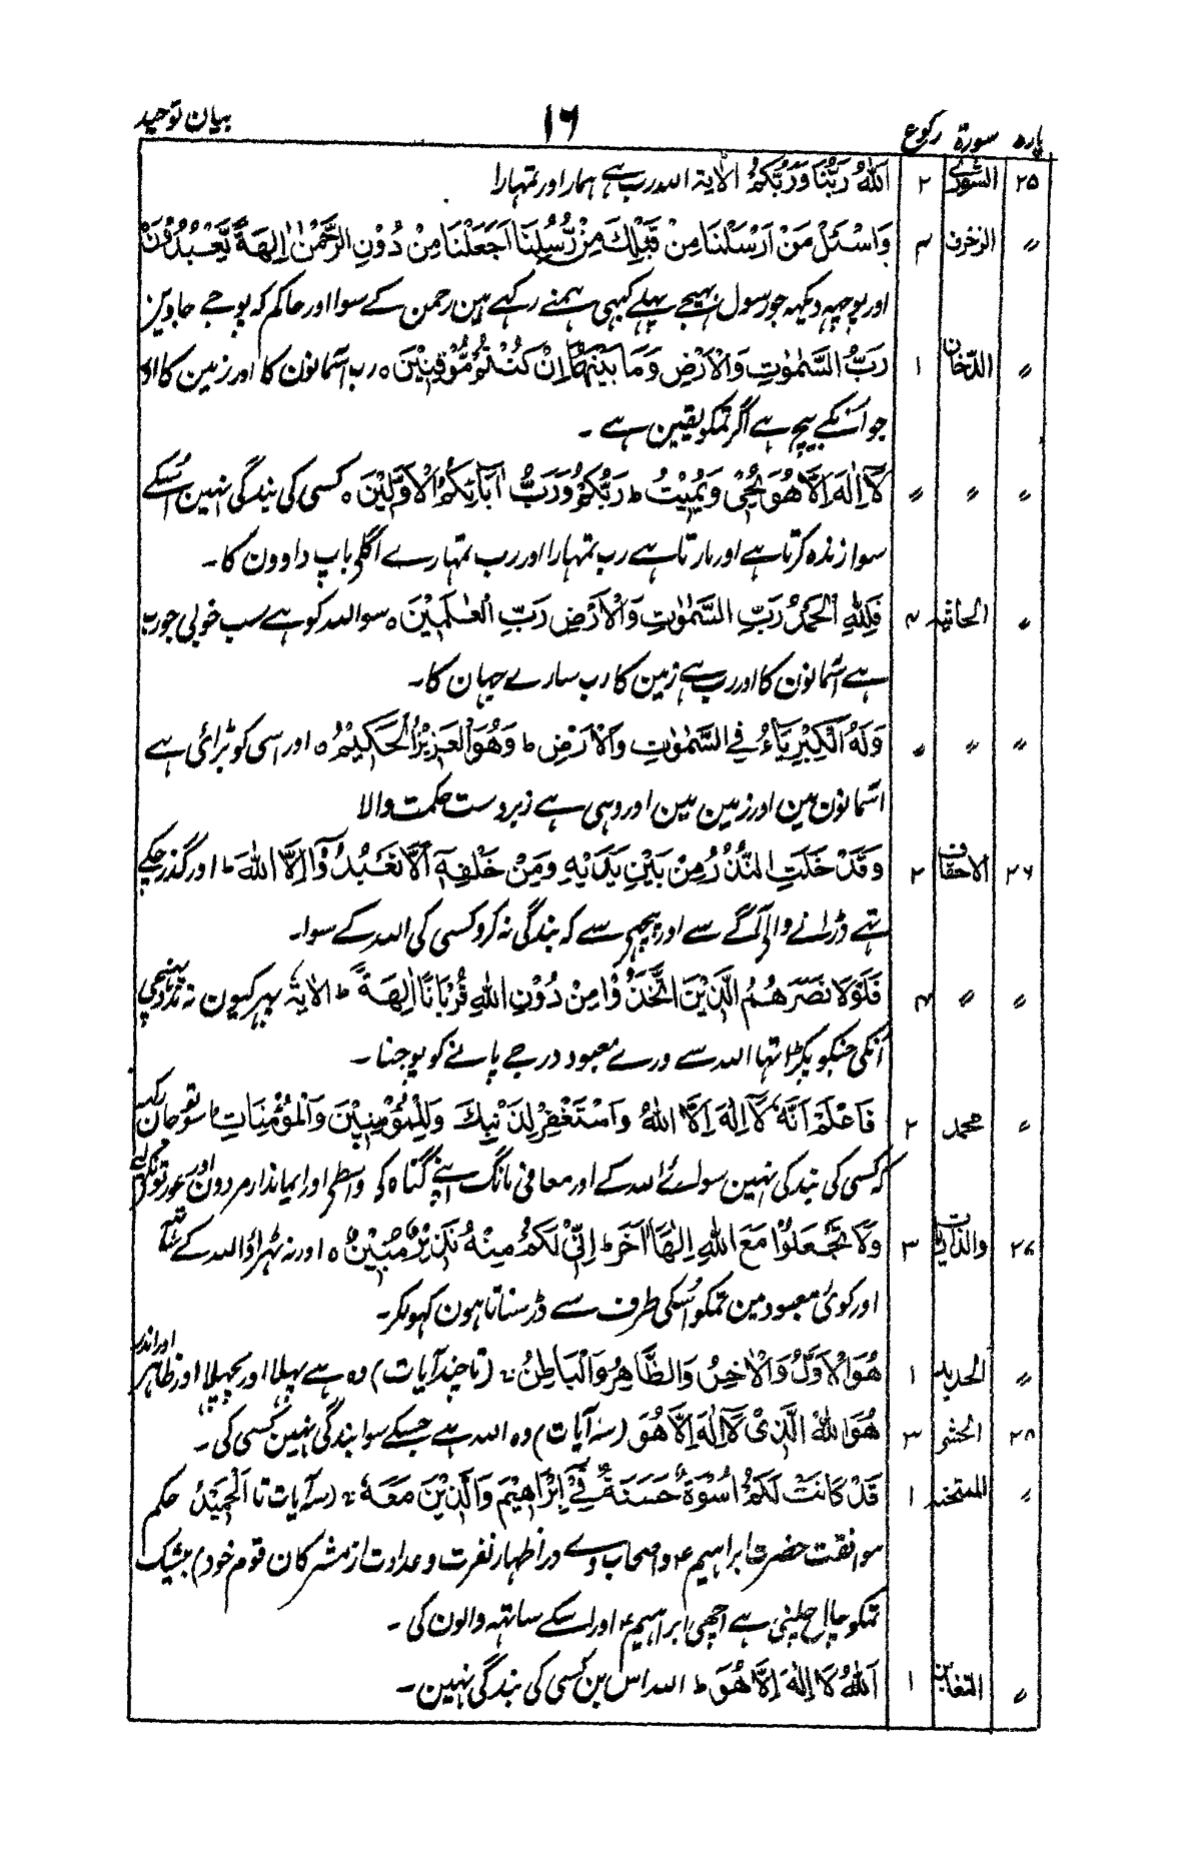 بیان توحید
۱۶
پارہ سورۃ رکوع
۲۵ الشوریٰ ۲ اَللّٰہُ رَبُّنَا وَرَبُّکُمْ الاٰیۃ اللہ رب ہے ہمارا اور تمہارا
〃 الزخرف ۴ وَاسْئَلْ مَنْ اَرْسَلْنَا مِنْ قَبْلِکَ مِنْ رُّسُلِنَا اَجَعَلْنَا مِنْ دُوْنِ الرَّحْمٰنِ اٰلِہَۃً یُّعْبَدُوْنَ
اور پوچہہ دیکہہ جو رسول بہیجے پہلے کبہی ہمنے رکہے ہین رحمن کے سوا اور حاکم کہ پوجے جاوین
〃 الدّخان ۱ رَبُّ السَّمٰوٰتِ وَالْاَرْضِ وَمَا بَیْنَہُمَا اِنْ کُنْتُمْ مُّوْقِنِیْنَ ہ رب آسمانون کا اور زمین کا اور
جو اُنکے بیچ ہے اگر تمکو یقین ہے ۔
〃 〃 〃 لَآ اِلٰہَ اِلَّا ہُوَ یُحْیٖ وَیُمِیْتُ ط رَبُّکُمْ وَرَبُّ اٰبَآئِکُمُ الْاَوَّلِیْنَ ہ کسی کی بندگی نہین اُسکے
سوا زندہ کرتا ہے اور مارتا ہے رب تمہارا اور رب تمہارے اگلے باپ داوون کا ۔
〃 الجاثیہ ۴ فَلِلّٰہِ الْحَمْدُ رَبِّ السَّمٰوٰتِ وَالْاَرْضِ رَبِّ الْعٰلَمِیْنَ ہ سو اللہ کو ہے سب خوبی جو رب
ہے آسمانون کا اور رب ہے زمین کا رب سارے جہان کا ۔
〃 〃 〃 وَلَہُ الْکِبْرِیَآءُ فِی السَّمٰوٰتِ وَالْاَرْضِ ط وَہُوَ الْعَزِیْزُ الْحَکِیْمُ ہ اور اسی کو بڑائی ہے
آسمانون مین اور زمین مین اور وہی ہے زبردست حکمت والا
۲۶ الاحقاف ۲ وَقَدْ خَلَتِ النُّذُرُ مِنْ بَیْنِ یَدَیْہِ وَمِنْ خَلْفِہٖٓ اَلَّا تَعْبُدُوْٓا اِلَّا اللّٰہَ ط اور گذر چکے
تہے ڈرانے والے آگے سے اور پیچہے سے کہ بندگی نہ کرو کسی کی اللہ کے سوا۔
〃 〃 ۴ فَلَوْلَا نَصَرَہُمُ الَّذِیْنَ اتَّخَذُوْا مِنْ دُوْنِ اللّٰہِ قُرْبَانًا اٰلِہَۃً ط الاٰیۃ پہر کیون نہ مدد پہنچی
اُنکی جنکو پکڑا تہا اللہ سے ورے معبود درجے پانے کو پوجنا ۔
〃 محمد ۲ فَاعْلَمْ اَنَّہٗ لَآ اِلٰہَ اِلَّا اللّٰہُ وَاسْتَغْفِرْ لِذَنْبِکَ وَلِلْمُؤْمِنِیْنَ وَالْمُؤْمِنَاتِ ط سو تو جان رکہہ
کہ کسی کی بندگی نہین سوائے اللہ کے اور معافی مانگ اپنے گناہ کے واسطے اور ایماندار مردون اور عورتونکے لئے
۲۷ والذاریات ۳ وَلَا تَجْعَلُوْا مَعَ اللّٰہِ اِلٰہًا اٰخَرَ ط اِنِّیْ لَکُمْ مِنْہُ نَذِیْرٌ مُّبِیْنٌ ہ اور نہ ٹہراؤ اللہ کے ساتہہ
اور کوئی معبود مین تمکو اُسکی طرف سے ڈر سناتا ہون کہولکر۔
〃 الحدید ۱ ہُوَ الْاَوَّلُ وَالْاٰخِرُ وَالظَّاہِرُ وَالْبَاطِنُ (تا چند آیات) وہ ہے پہلا اور پچہلا اور ظاہر اور اندر
۲۸ الحشر ۳ ہُوَ اللّٰہُ الَّذِیْ لَآ اِلٰہَ اِلَّا ہُوَ (سہ آیات) وہ اللہ ہے جسکے سوا بندگی نہین کسی کی ۔
〃 الممتحنہ ۱ قَدْ کَانَتْ لَکُمْ اُسْوَۃٌ حَسَنَۃٌ فِیْٓ اِبْرَاہِیْمَ وَالَّذِیْنَ مَعَہٗ (سہ آیات تا الْحَمِیْدُ حکم
موافقت حضرت ابراہیمؑ و اصحاب وے در اظہار نفرت و عداوت از مشرکان قوم خود) بیشک
تمکو چال چلنی ہے اچہی ابراہیمؑ اور اسکے ساتہہ والون کی ۔
〃 التغابن ۱ اَللّٰہُ لَآ اِلٰہَ اِلَّا ہُوَ ط اللہ اس بن کسی کی بندگی نہین ۔